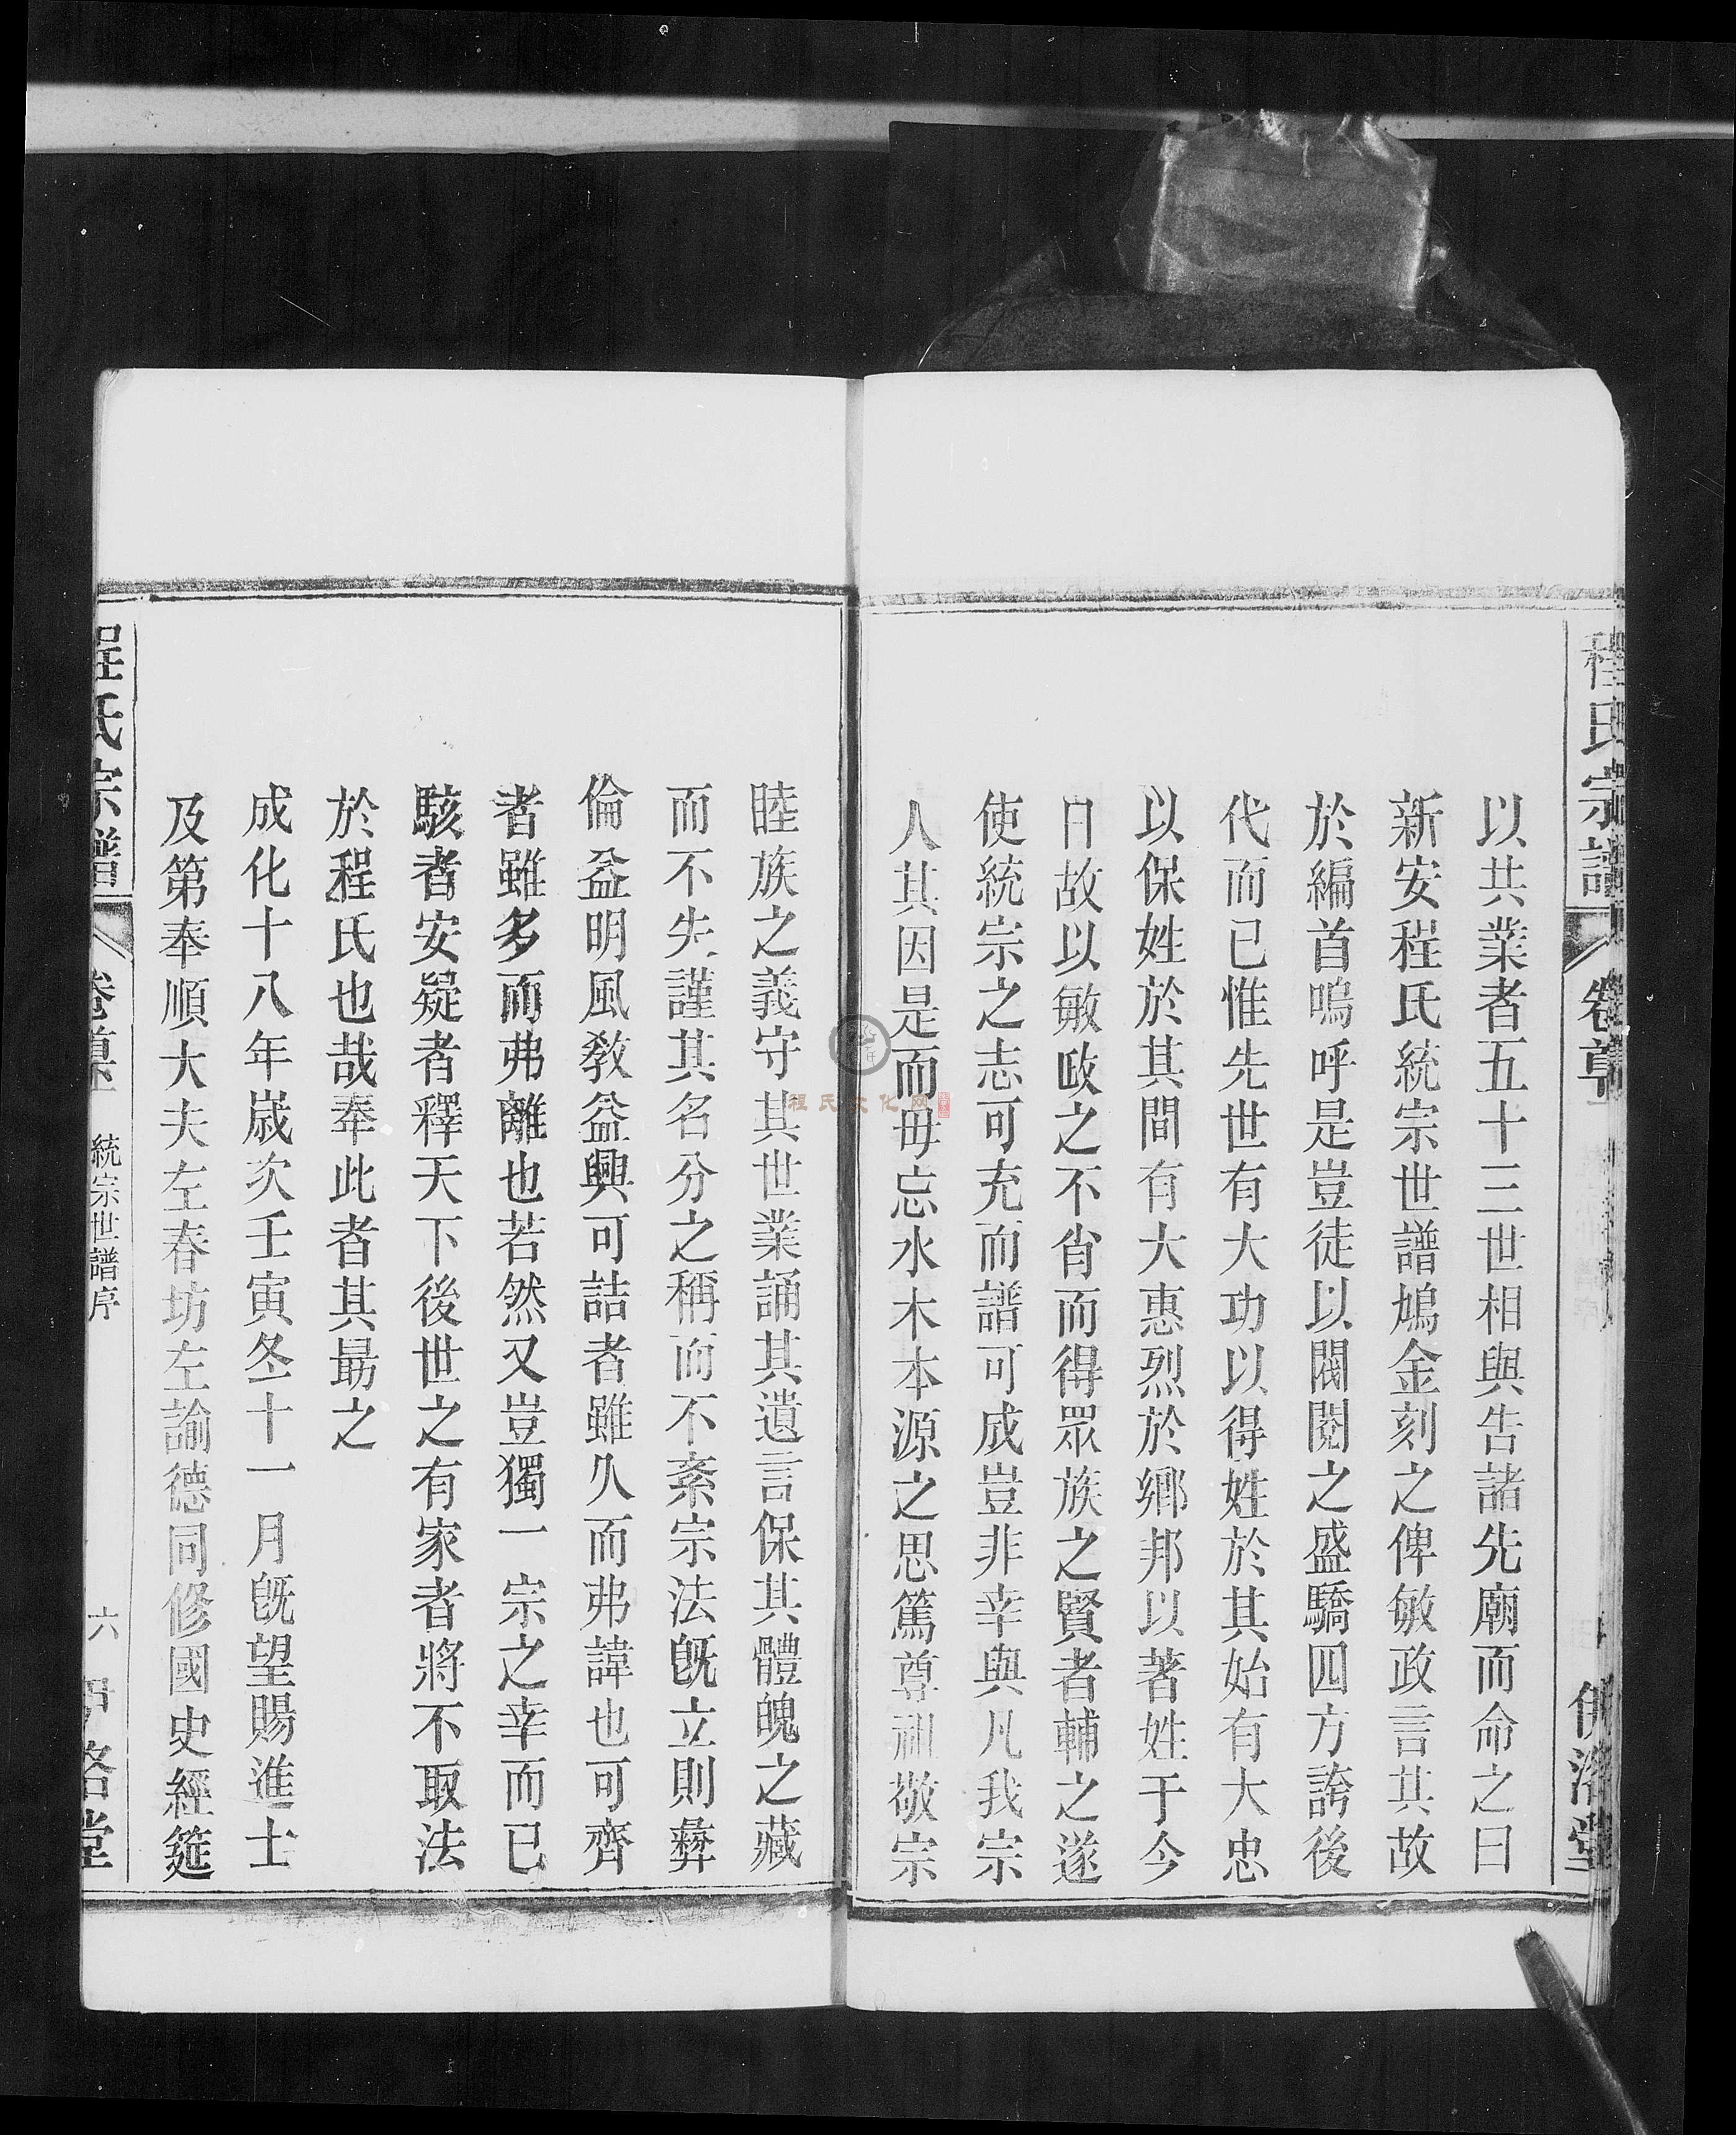 程氏宗譜
卷首
伊洛堂
以共業者五十三世相與告諸先廟而命之曰
新安程氏統宗世譜鳩金刻之俾敏政言其故
於編首嗚呼是豈徒以閥閱之盛驕四方誇後
代而已惟先世有大功以得姓於其始有大忠
以保姓於其間有大惠烈於鄉邦以著姓于今
日故以敏政之不肖而得眾族之賢者輔之遂
使統宗之志可充而譜可成豈非幸與凡我宗
人其因是而毋忘水木本源之思篤尊祖敬宗
睦族之義守其世業誦其遺言保其體魄之藏
而不失謹其名分之稱而不紊宗法旣立則彝
倫益明風敎益興可詰者雖久而弗諱也可齊
者雖多而弗離也若然又豈獨一宗之幸而已
駭者安疑者釋天下後世之有家者將不取法
於程氏也哉奉此者其勗之
成化十八年歲次壬寅冬十一月旣望賜進士
及第奉順大夫左春坊左諭德同修國史經筵
程氏宗譜
卷首
統宗世譜序
六
伊洛堂
程氏文化网